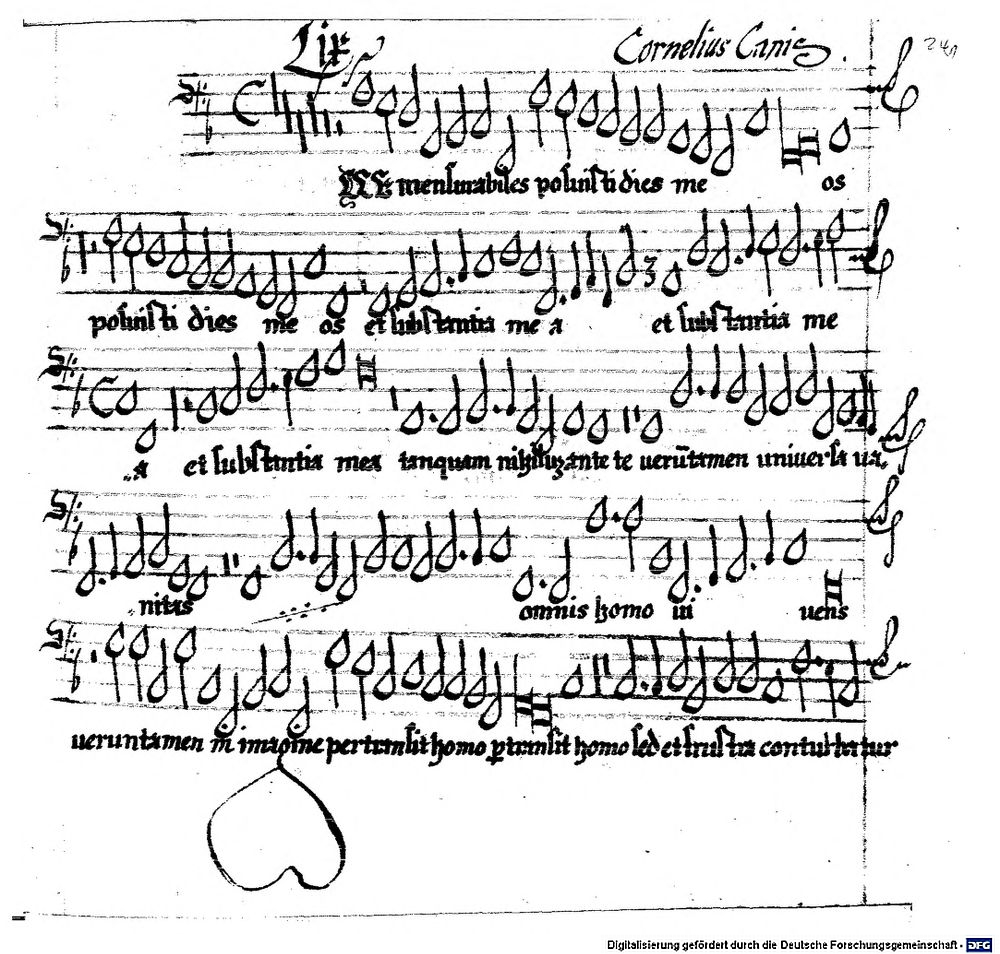 Lix Cornelius Canis .
Ecce mensurabiles posuisti dies me os
posuisti dies me os et substantia me a et substantia me
a et substantia mea tanquam nihilum ante te verũtamen universa va
nitas omnis homo vi vens
veruntamen in imagine pertransit homo ꝑtransit homo sed et frustra conturbatur
Digitalisierung gefördert durch die Deutsche Forschungsgemeinschaft - DFG